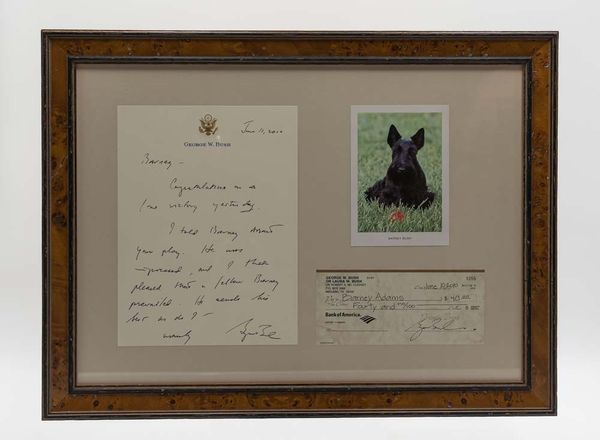 GEORGE W. BUSH
June 11, 2010
Barney —
Congratulations on a
fine victory yesterday.
I told Barney about
your play. He was
impressed, and I think
pleased that a fellow Barney
prevailed. He sends his
best as do I —
BARNEY BUSH
GEORGE W. BUSH
OR LAURA W. BUSH
Barney Adams
$ 40.00
Fourty and no/100
Bank of America